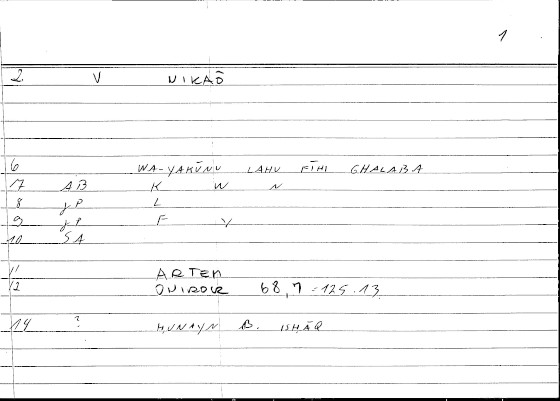 1
2. V NIKAŌ
6 WA-YAKŪNU LAHU FĪHI GHALABA
7 AB K W N
8 gP L
9 gP F Y
10 SA
11 ARTEM
12 ONIROCR 68,7 = 125.13
14 ? ḤUNAYN B. ISḤĀQ